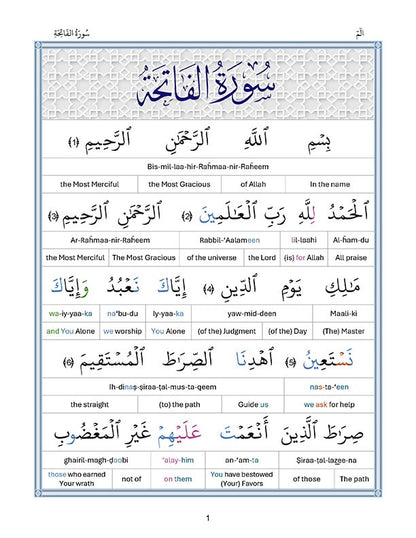 الٓمٓ سُورَةُ الفَاتِحَةِ
سُورَةُ الفَاتِحَةُ
بِسْمِ ٱللَّهِ ٱلرَّحْمَٰنِ ٱلرَّحِيمِ (1)
Bis-mil-laa-hir-Raḥmaa-nir-Raḥeem
the Most Merciful the Most Gracious of Allah In the name
ٱلْحَمْدُ لِلَّهِ رَبِّ ٱلْعَـٰلَمِينَ (2) ٱلرَّحْمَٰنِ ٱلرَّحِيمِ (3)
Ar-Raḥmaa-nir-Raheem Rabbil-‘Aalameen lil-laahi Al-ḥam-du
the Most Merciful The Most Gracious of the universe the Lord (is) for Allah All praise
مَـٰلِكِ يَوْمِ ٱلدِّينِ (4) إِيَّاكَ نَعْبُدُ وَإِيَّاكَ
wa-iy-yaa-ka na‘bu-du Iy-yaa-ka yaw-mid-deen Maali-ki
and You Alone we worship You Alone (of the) Judgment (of the) Day (The) Master
نَسْتَعِينُ (5) ٱهْدِنَا ٱلصِّرَٰطَ ٱلْمُسْتَقِيمَ (6)
Ih-dinaṣ-ṣiraa-ṭal-mus-ta-qeem nas-ta-‘een
the straight (to the) path Guide us we ask for help
صِرَٰطَ ٱلَّذِينَ أَنْعَمْتَ عَلَيْهِمْ غَيْرِ ٱلْمَغْضُوبِ
ghairil-magh-ḍoobi ‘alay-him an-‘am-ta Ṣiraa-ṭal-laẓee-na
those who earned Your wrath not of on them You have bestowed (Your) Favors of those The path
1